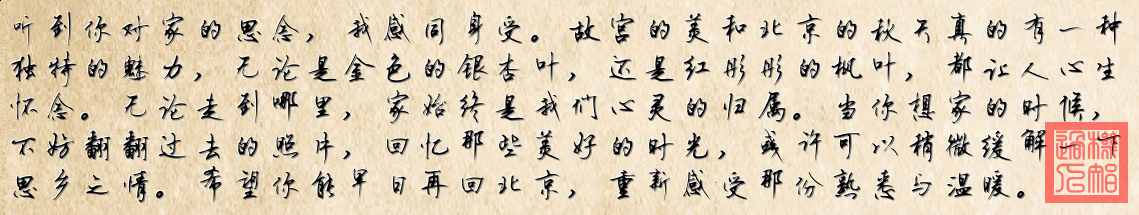 听到你对家的思念，我感同身受。故宫的美和北京的秋天真的有一种
独特的魅力，无论是金色的银杏叶，还是红彤彤的枫叶，都让人心生
怀念。无论走到哪里，家始终是我们心灵的归属。当你想家的时候，
不妨翻翻过去的照片，回忆那些美好的时光，或许可以稍微缓解一下
思乡之情。希望你能早日再回北京，重新感受那份熟悉与温暖。